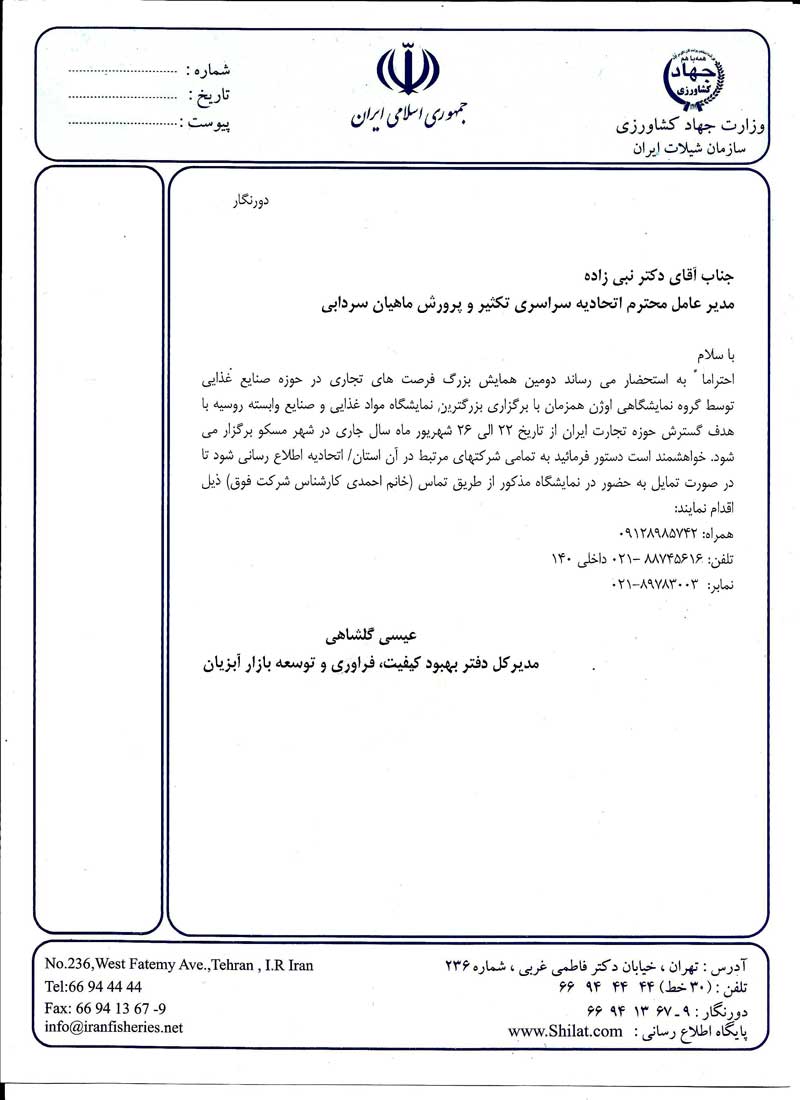 همه با هم
جهاد
کشاورزی
وزارت جهاد کشاورزی
سازمان شیلات ایران
جمهوری اسلامی ایران
شماره : ............................
تاریخ : ............................
پیوست : ............................
دورنگار
جناب آقای دکتر نبی زاده
مدیر عامل محترم اتحادیه سراسری تکثیر و پرورش ماهیان سردابی
با سلام
احتراما ً به استحضار می رساند دومین همایش بزرگ فرصت های تجاری در حوزه صنایع غذایی
توسط گروه نمایشگاهی اوژن همزمان با برگزاری بزرگترین نمایشگاه مواد غذایی و صنایع وابسته روسیه با
هدف گسترش حوزه تجارت ایران از تاریخ ۲۲ الی ۲۶ شهریور ماه سال جاری در شهر مسکو برگزار می
شود. خواهشمند است دستور فرمائید به تمامی شرکتهای مرتبط در آن استان/ اتحادیه اطلاع رسانی شود تا
در صورت تمایل به حضور در نمایشگاه مذکور از طریق تماس (خانم احمدی کارشناس شرکت فوق) ذیل
اقدام نمایند:
همراه: ۰۹۱۲۸۹۸۵۷۴۲
تلفن: ۸۸۷۴۵۶۱۶ –۰۲۱ داخلی ۱۴۰
نمابر: ۸۹۷۸۳۰۰۳–۰۲۱
عیسی گلشاهی
مدیرکل دفتر بهبود کیفیت، فراوری و توسعه بازار آبزیان
آدرس : تهران ، خیابان دکتر فاطمی غربی ، شماره ۲۳۶
تلفن : (۳۰ خط) ۴۴ ۴۴ ۹۴ ۶۶
دورنگار : ۹ ـ ۶۷ ۱۳ ۹۴ ۶۶
پایگاه اطلاع رسانی : www.Shilat.com
No.236,West Fatemy Ave.,Tehran , I.R Iran
Tel:66 94 44 44
Fax: 66 94 13 67 -9
info@iranfisheries.net